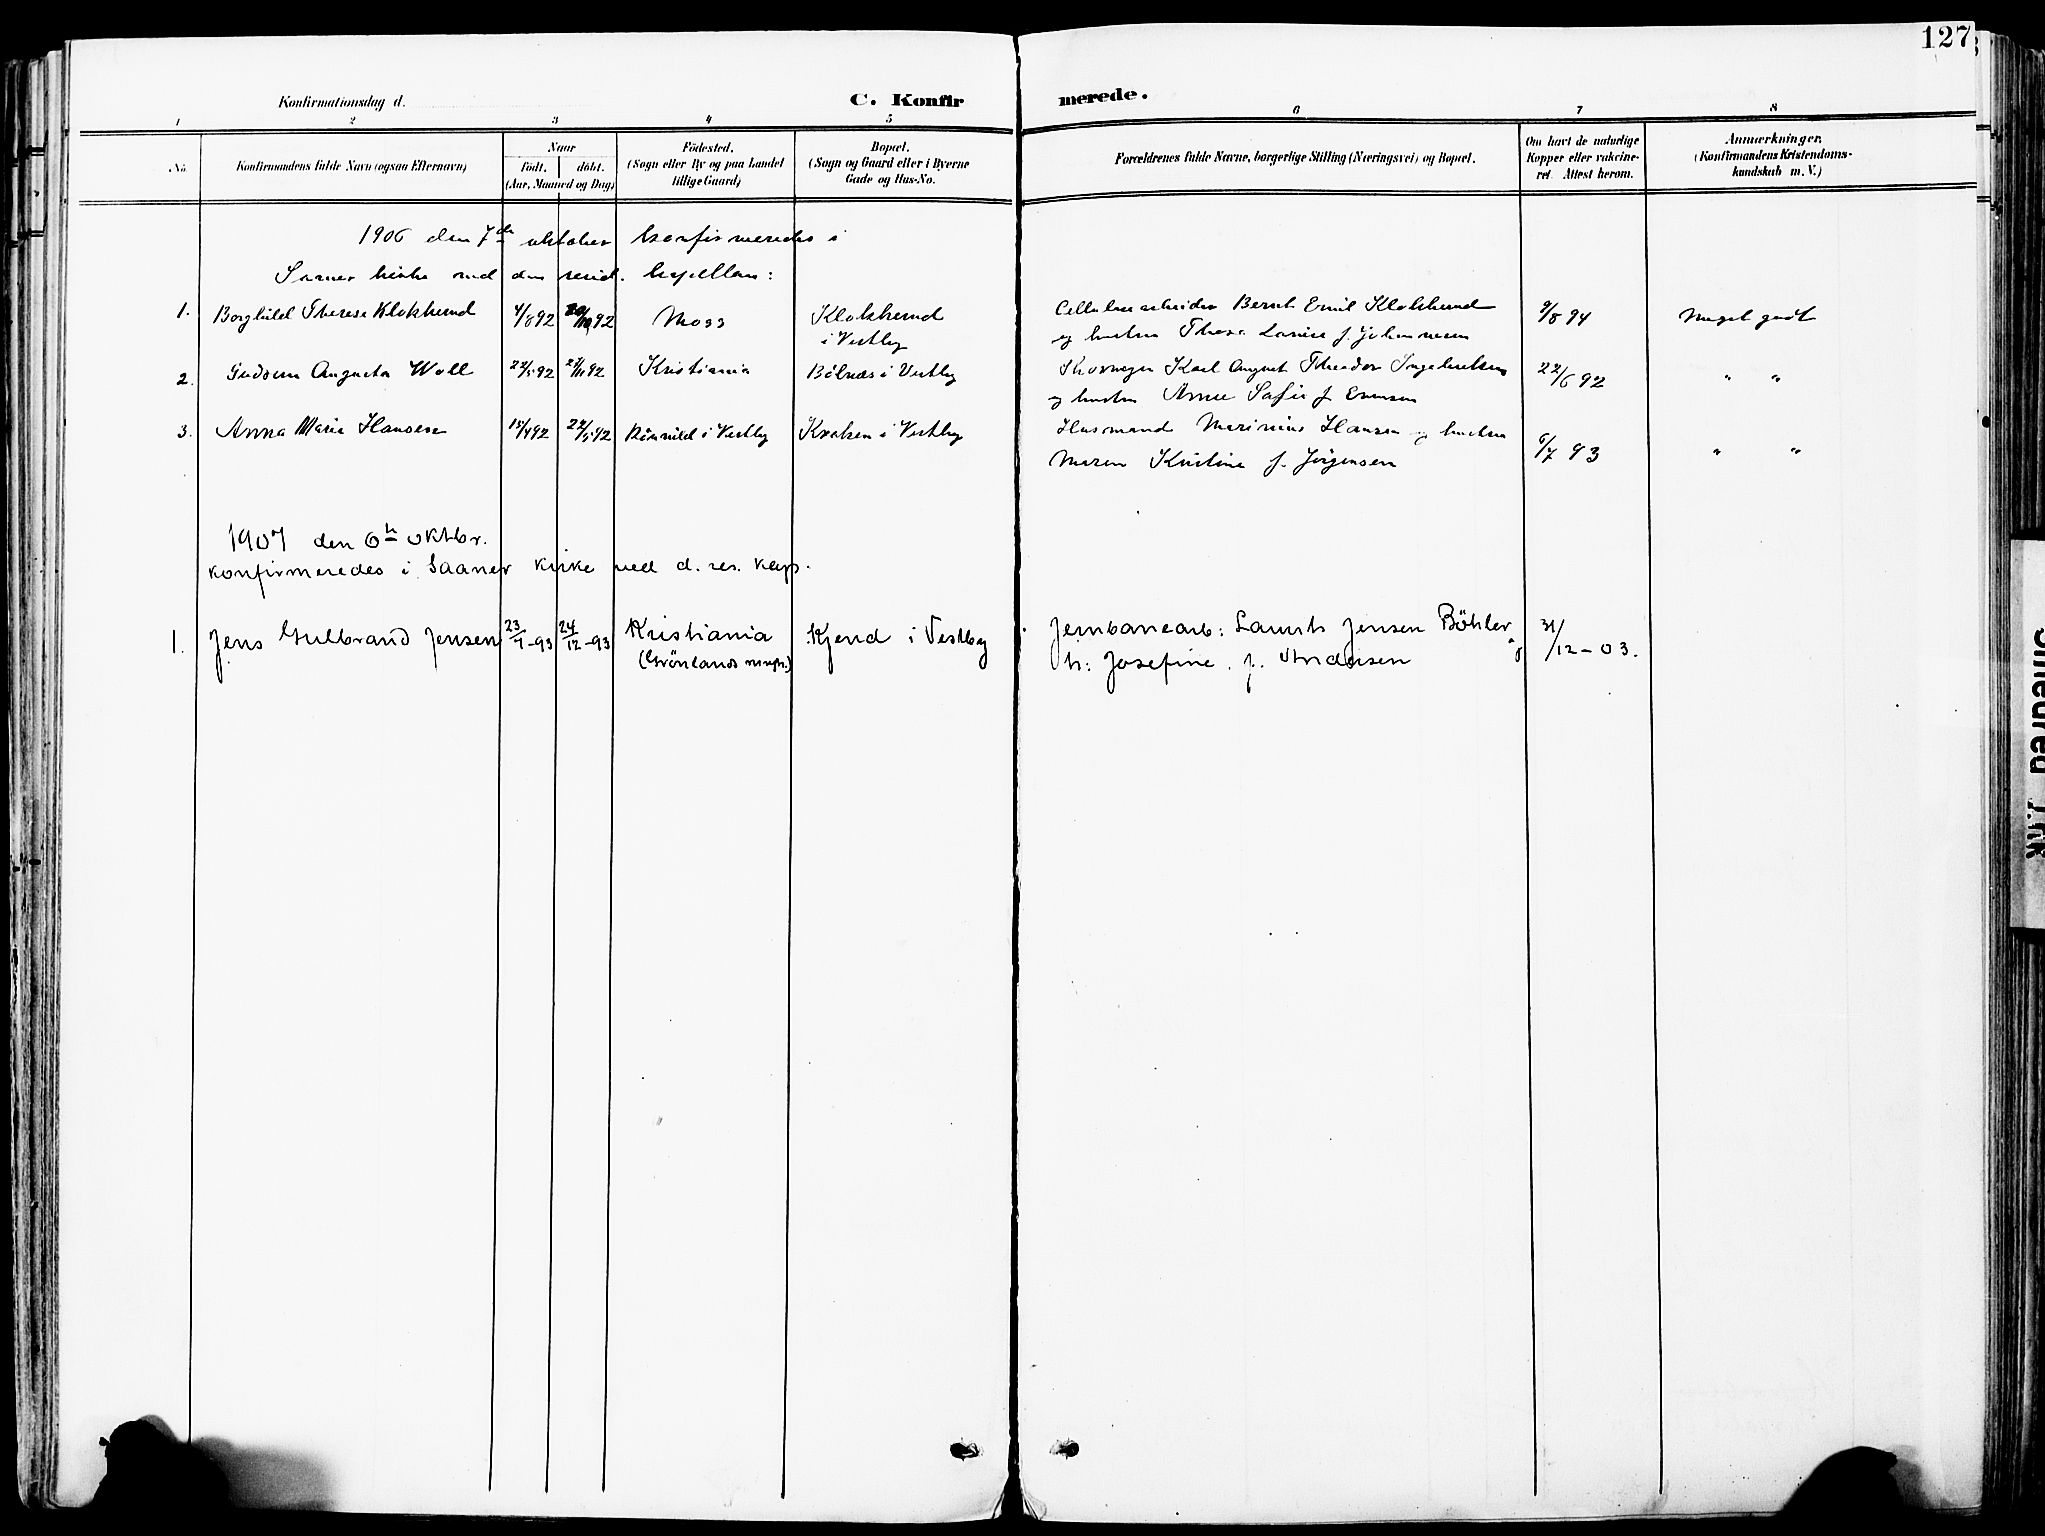 127
Konfirmationsdag d.
C. Konfirmerede.
1 2 3 4 5 6 7 8
No.
Konfirmandens fulde Navn (ogsaa Efternavn)
Naar
födt. döbt.
(Aar, Maaned og Dag)
Födested.
(Sogn eller By og paa Landet
tillige Gaard)
Bopæl.
(Sogn og Gaard eller i Byerne
Gade og Hus-No.
Forældrenes fulde Navne, borgerlige Stilling (Næringsvei) og Bopæl.
Om havt de naturlige
Kopper eller vakcine-
ret. Attest herom.
Anmærkninger.
(Konfirmandens Kristendoms-
kundskab m. V.)
1906 den 7de oktober konfirmeredes i
Saaner kirke ved den resid. kapellan:
1. Borghild Therese Klokkerud 4/8 92 92 Moss Klokkerud
i Vestby
Cellulosearbeider Bernt Emil Klokkerud
og hustru Thea Lovise f. Johannesen
9/8 94 Meget godt
2. Gudrun Augusta Woll 22/5 92 27/11 92 Kristiania Bölnæs i Vestby
Karl August Theodor
og hustru Anne Sofie f. Evensen
22/6 92 " "
3. Anna Marie Hansen 15/4 92 22/5 92 i Vestby Kroken i Vestby
Husmand Marinius Hansen og hustru
Maren Kristine f. Jörgensen
6/7 93 " "
1907 den 6te oktbr.
konfirmeredes i Saaner kirke ved d. res. kap.
1. Jens Gulbrand Jensen 23/7-93 24/12-93 Kristiania Kjend i Vestby
(Grönlands mngh.)
Jernbanearb: Laurits Jensen Böhler og
h: Josefine f. Andersen
31/12-03.